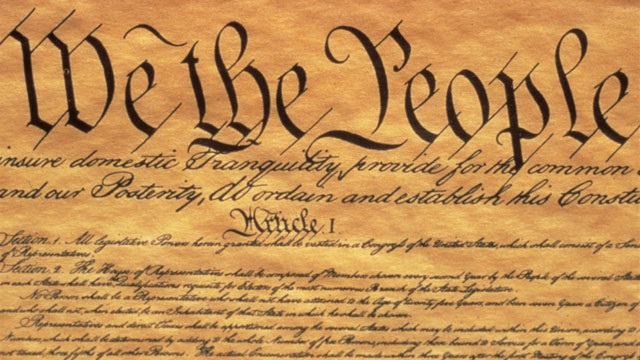 We the People
insure domestic Tranquility, provide for the common
and our Posterity, do ordain and establish this Constitu
Article. I.
Section. 1. All legislative Powers herein granted shall be vested in a Congress of the United States, which shall consist of a Sen
of Representatives.
Section. 2. The House of Representatives shall be composed of Members chosen every second Year by the People of the several States
in each State shall have Qualifications requisite for Electors of the most numerous Branch of the State Legislature.
No Person shall be a Representative who shall not have attained to the Age of twenty five Years, and been seven Years a Citizen of
and who shall not, when elected, be an Inhabitant of that State in which he shall be chosen.
Representatives and direct Taxes shall be apportioned among the several States which may be included within this Union, according to
Numbers, which shall be determined by adding to the whole Number of free Persons, including those bound to Service for a Term of Years, and
not taxed, three fifths of all other Persons. The actual Enumeration shall be made within three Years after the first